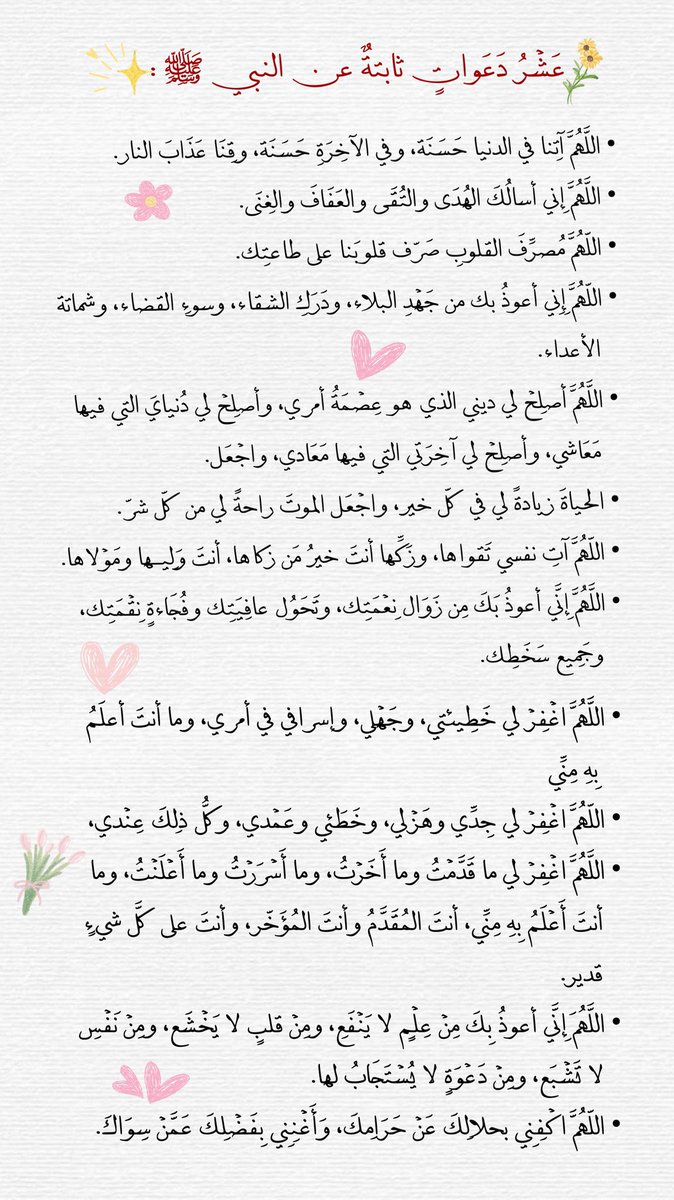 عَشْرُ دَعَوَاتٍ ثابتةٌ عن النبي ﷺ :
• اللَّهُمَّ آتِنا في الدنيا حَسَنَة، وفي الآخِرَةِ حَسَنَة، وقِنَا عَذَابَ النار.
• اللَّهُمَّ إني أسالُكَ الهُدَى والتُقَى والعَفَافَ والغِنَى.
• اللهُمَّ مُصرِّفَ القلوبِ صَرّف قلوبَنا على طاعتِك.
• اللّهُمَّ إِني أعوذُ بك من جَهْدِ البلاءِ، ودَرَكِ الشقاء، وسوءِ القضاء، وشماتة
الأعداء.
• اللَّهُمَّ أصلِحْ لي ديني الذي هو عِصْمَةُ أمري، وأصلِحْ لي دُنيايَ التي فيها
مَعَاشي، وأصلِحْ لي آخِرَتي التي فيها مَعَادي، واجْعَل.
• الحياةَ زيادةً لي في كلّ خير، واجْعَل الموتَ راحةً لي من كلّ شرّ.
• اللّهُمَّ آتِ نفسي تَقواها، وزَكِّها أنتَ خيرُ مَن زكاها، أنتَ وَلِيـها ومَوْلاها.
• اللَّهُمَّ إِنَّي أعوذُ بَكَ مِن زَوَالِ نِعْمَتِك، وتَحَوُل عافِيَتِك وفُجَاءةٍ نِقْمَتِك،
وجَمِيع سَخَطِك.
• اللَّهُمَّ اغْفِرْ لي خَطِيئتي، وجَهْلي، وإسرافي في أمري، وما أنتَ أعلَمُ
بِهِ مِنَّي
• اللّهُمَّ اغْفِرْ لي جِدِّي وهَزْلي، وخَطَئي وعَمْدي، وكلُّ ذلِكَ عِنْدي،
• اللَّهُمَّ اغْفِرْ لي ما قَدَّمْتُ وما أَخَرْتُ، وما أَسْرَرْتُ وما أَعْلَنْتُ، وما
أنتَ أَعْلَمُ بِهِ مِنِّي، أنتَ المُقَدَّمُ وأنتَ المُؤَخّر، وأنتَ على كلَّ شيءٍ
قدير.
• اللَّهُمَّ إِنَّي أعوذُ بِكَ مِنْ عِلْمٍ لا يَنْفَعِ، ومِنْ قلبٍ لا يَخْشَع، ومِنْ نَفْسِ
لا تَشْبَع، ومِنْ دَعْوَةٍ لا يُسْتَجَابُ لها.
• اللَّهُمَّ اكْفِنِي بحلالِكَ عَنْ حَرَامِكَ، وَأَغْنِنِي بِفَضْلِكَ عَمَّنْ سِوَاكَ.